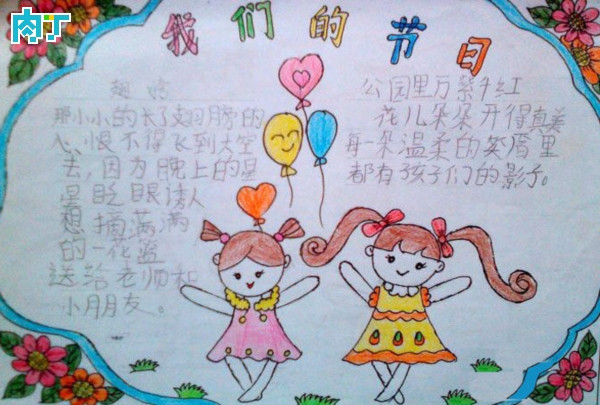 肉丁
我们的节日
想
那小小的长了翅膀的
心恨不得飞到天空
去，因为晚上的星
星眨眼诱人
想摘满满
的一花篮
送给老师和
小朋友。
公园里万紫千红
花儿朵朵开得真美
每一朵温柔的笑唇里
都有孩子们的影子。